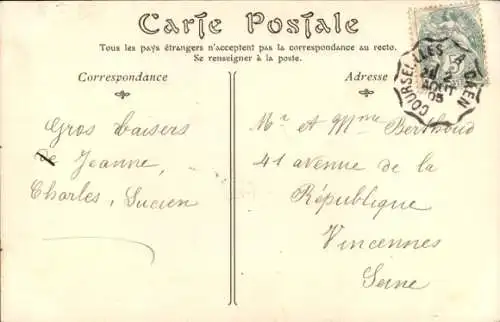 Carte Postale
Tous les pays étrangers n'acceptent pas la correspondance au recto.
Se renseigner à la poste.
Correspondance
Adresse
COURSEULLES A CAEN
AOUT
05
5
Gros baisers
de Jeanne,
Charles, Lucien
Mr et Mme Berthoud
41 avenue de la
République
Vincennes
Seine